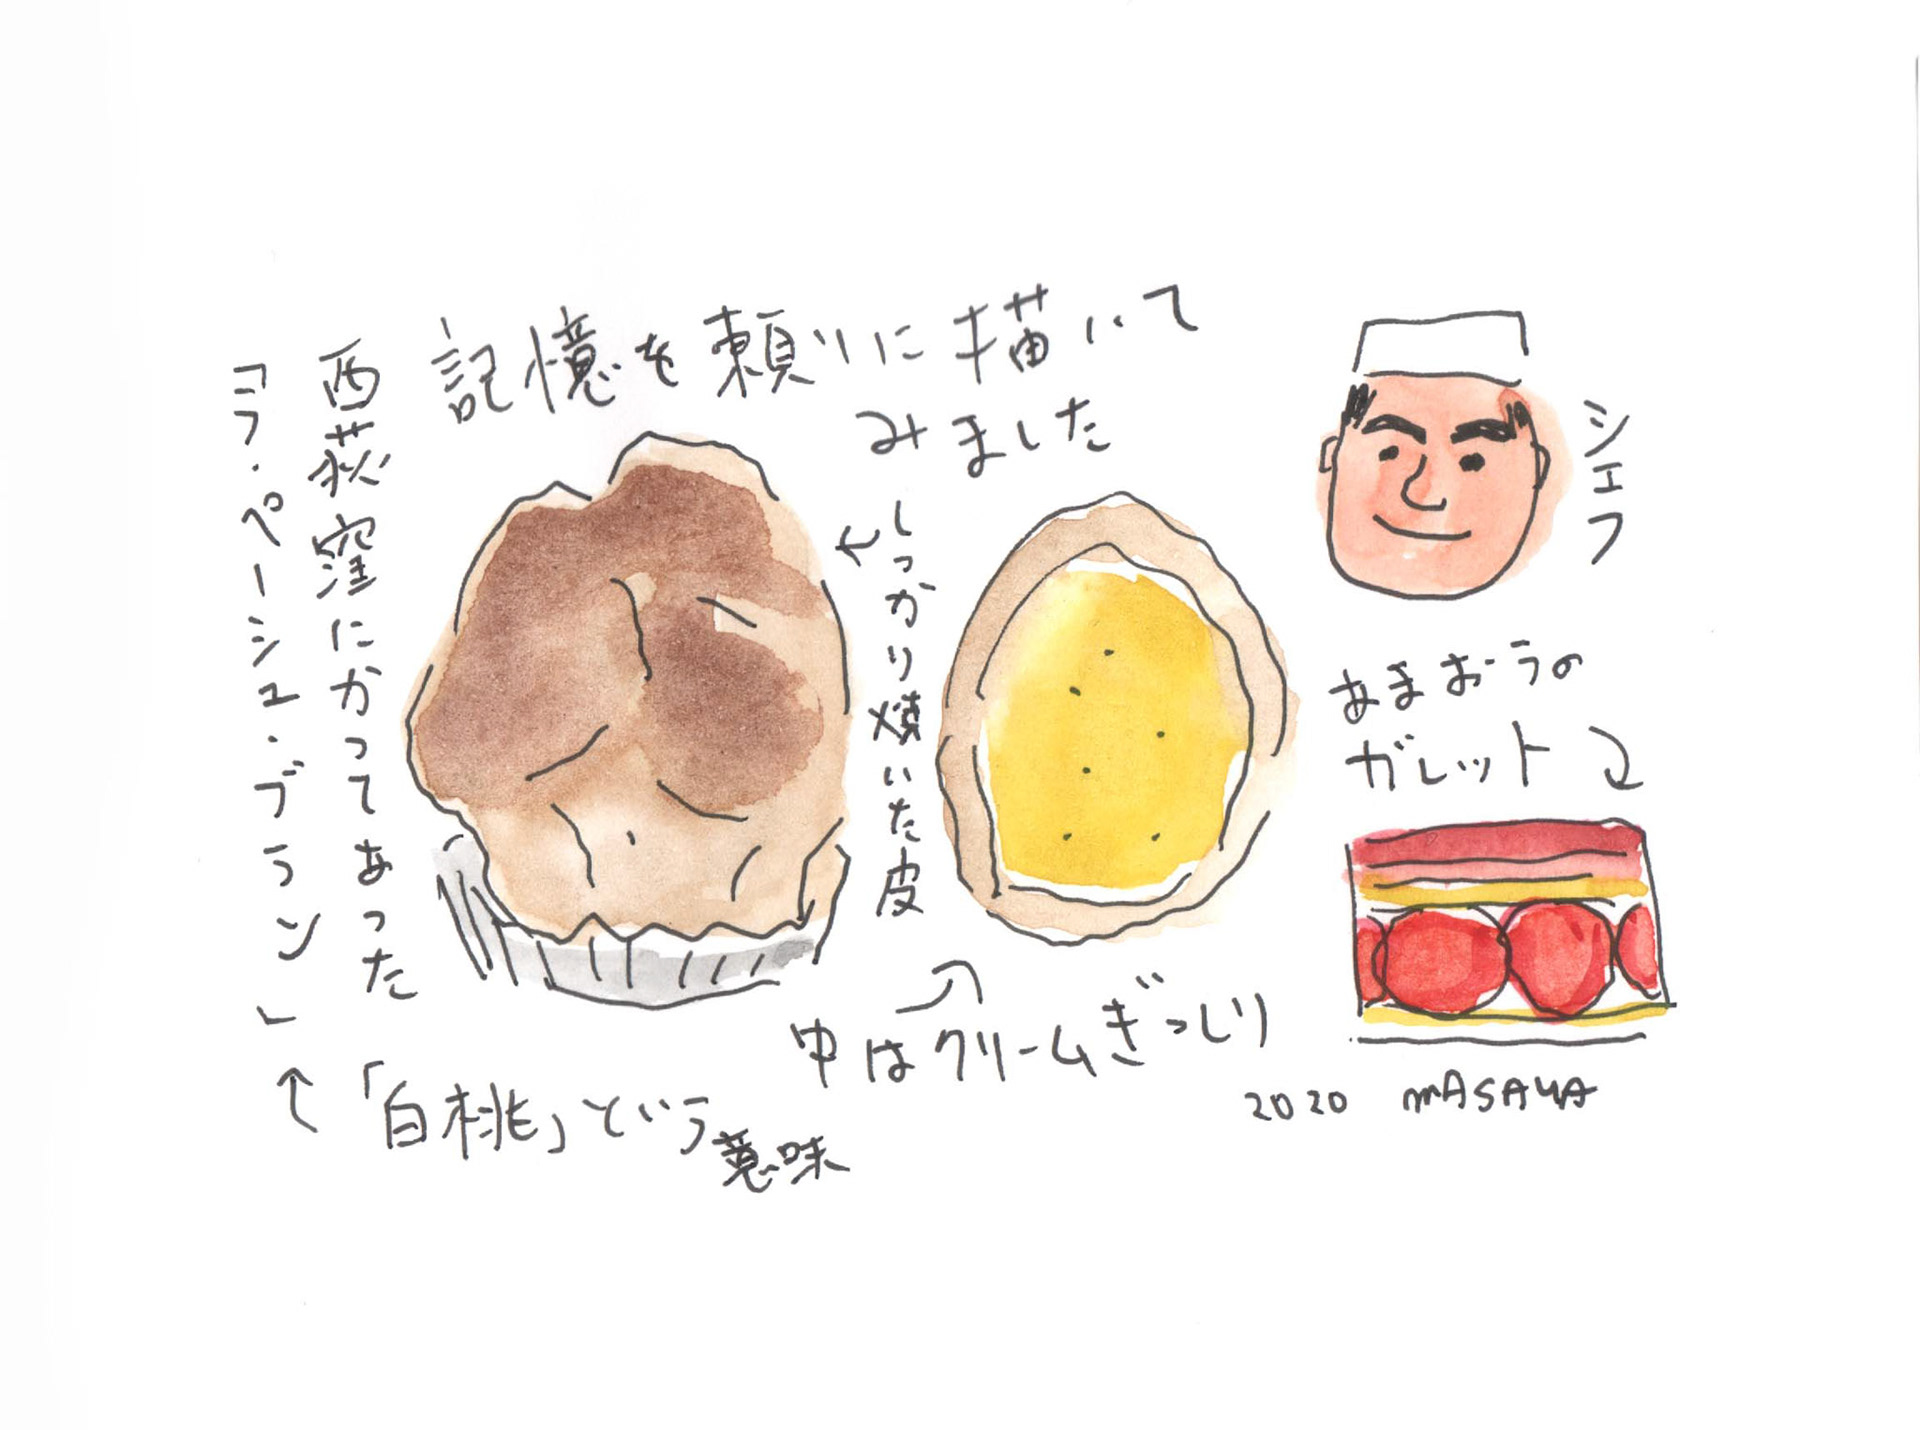 記憶を頼りに描いて
みました
西荻窪にかつてあった
「ラ・ペーシュ・ブラン」
↑「白桃」という
意味
←しっかり焼いた皮
中はクリームぎっしり
シェフ
あまおうの
ガレット
2020 MASAYA